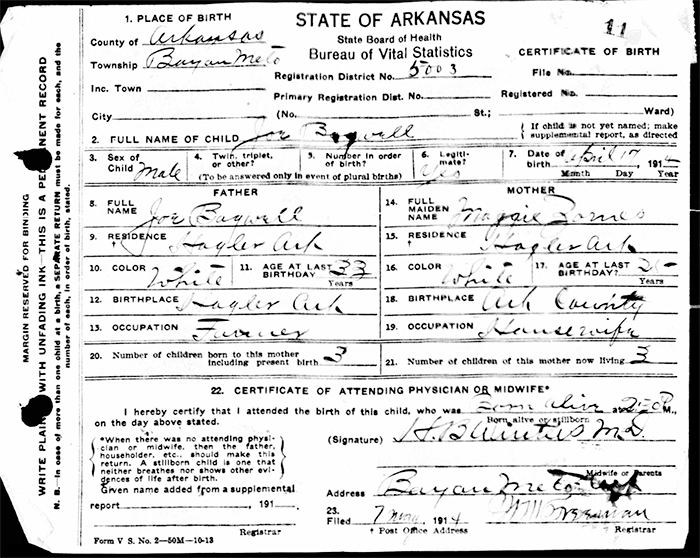 STATE OF ARKANSAS
State Board of Health
Bureau of Vital Statistics
11
CERTIFICATE OF BIRTH
1. PLACE OF BIRTH
County of Arkansas
Township Bayou Meto
Registration District No. 5003
File No.
Inc. Town
Primary Registration Dist. No.
Registered No.
City
(No. St.; Ward)
2. FULL NAME OF CHILD Joe Bagwell
If child is not yet named; make supplemental report, as directed
3. Sex of Child Male
4. Twin, triplet, or other?
5. Number in order of birth?
(To be answered only in event of plural births)
6. Legitimate? Yes
7. Date of birth April 17, 1914
Month Day Year
FATHER
MOTHER
8. FULL NAME Joe Bagwell
14. FULL MAIDEN NAME Maggie
9. RESIDENCE Hagler Ark
15. RESIDENCE Hagler Ark
10. COLOR White
11. AGE AT LAST BIRTHDAY 33
Years
16. COLOR White
17. AGE AT LAST BIRTHDAY?
Years
12. BIRTHPLACE Hagler Ark
18. BIRTHPLACE Ark County
13. OCCUPATION Farmer
19. OCCUPATION Housewife
20. Number of children born to this mother including present birth 3
21. Number of children of this mother now living 3
22. CERTIFICATE OF ATTENDING PHYSICIAN OR MIDWIFE*
I hereby certify that I attended the birth of this child, who was Born Alive at M.,
Born alive or stillborn
on the day above stated.
*When there was no attending physi-
cian or midwife, then the father,
householder, etc., should make this
return. A stillborn child is one that
neither breathes nor shows other evi-
dences of life after birth.
(Signature) M.D.
Midwife or Parents
Given name added from a supplemental
report , 191
Registrar
Address Bayou Meto
23.
Filed 7 May, 1914
† Post Office Address Registrar
Form V S. No. 2—50M—10-13
MARGIN RESERVED FOR BINDING
WRITE PLAIN WITH UNFADING INK—THIS IS A PERMANENT RECORD
N. B.—In case of more than one child at a birth, a SEPARATE RETURN must be made for each, and the
number of each, in order of birth, stated.